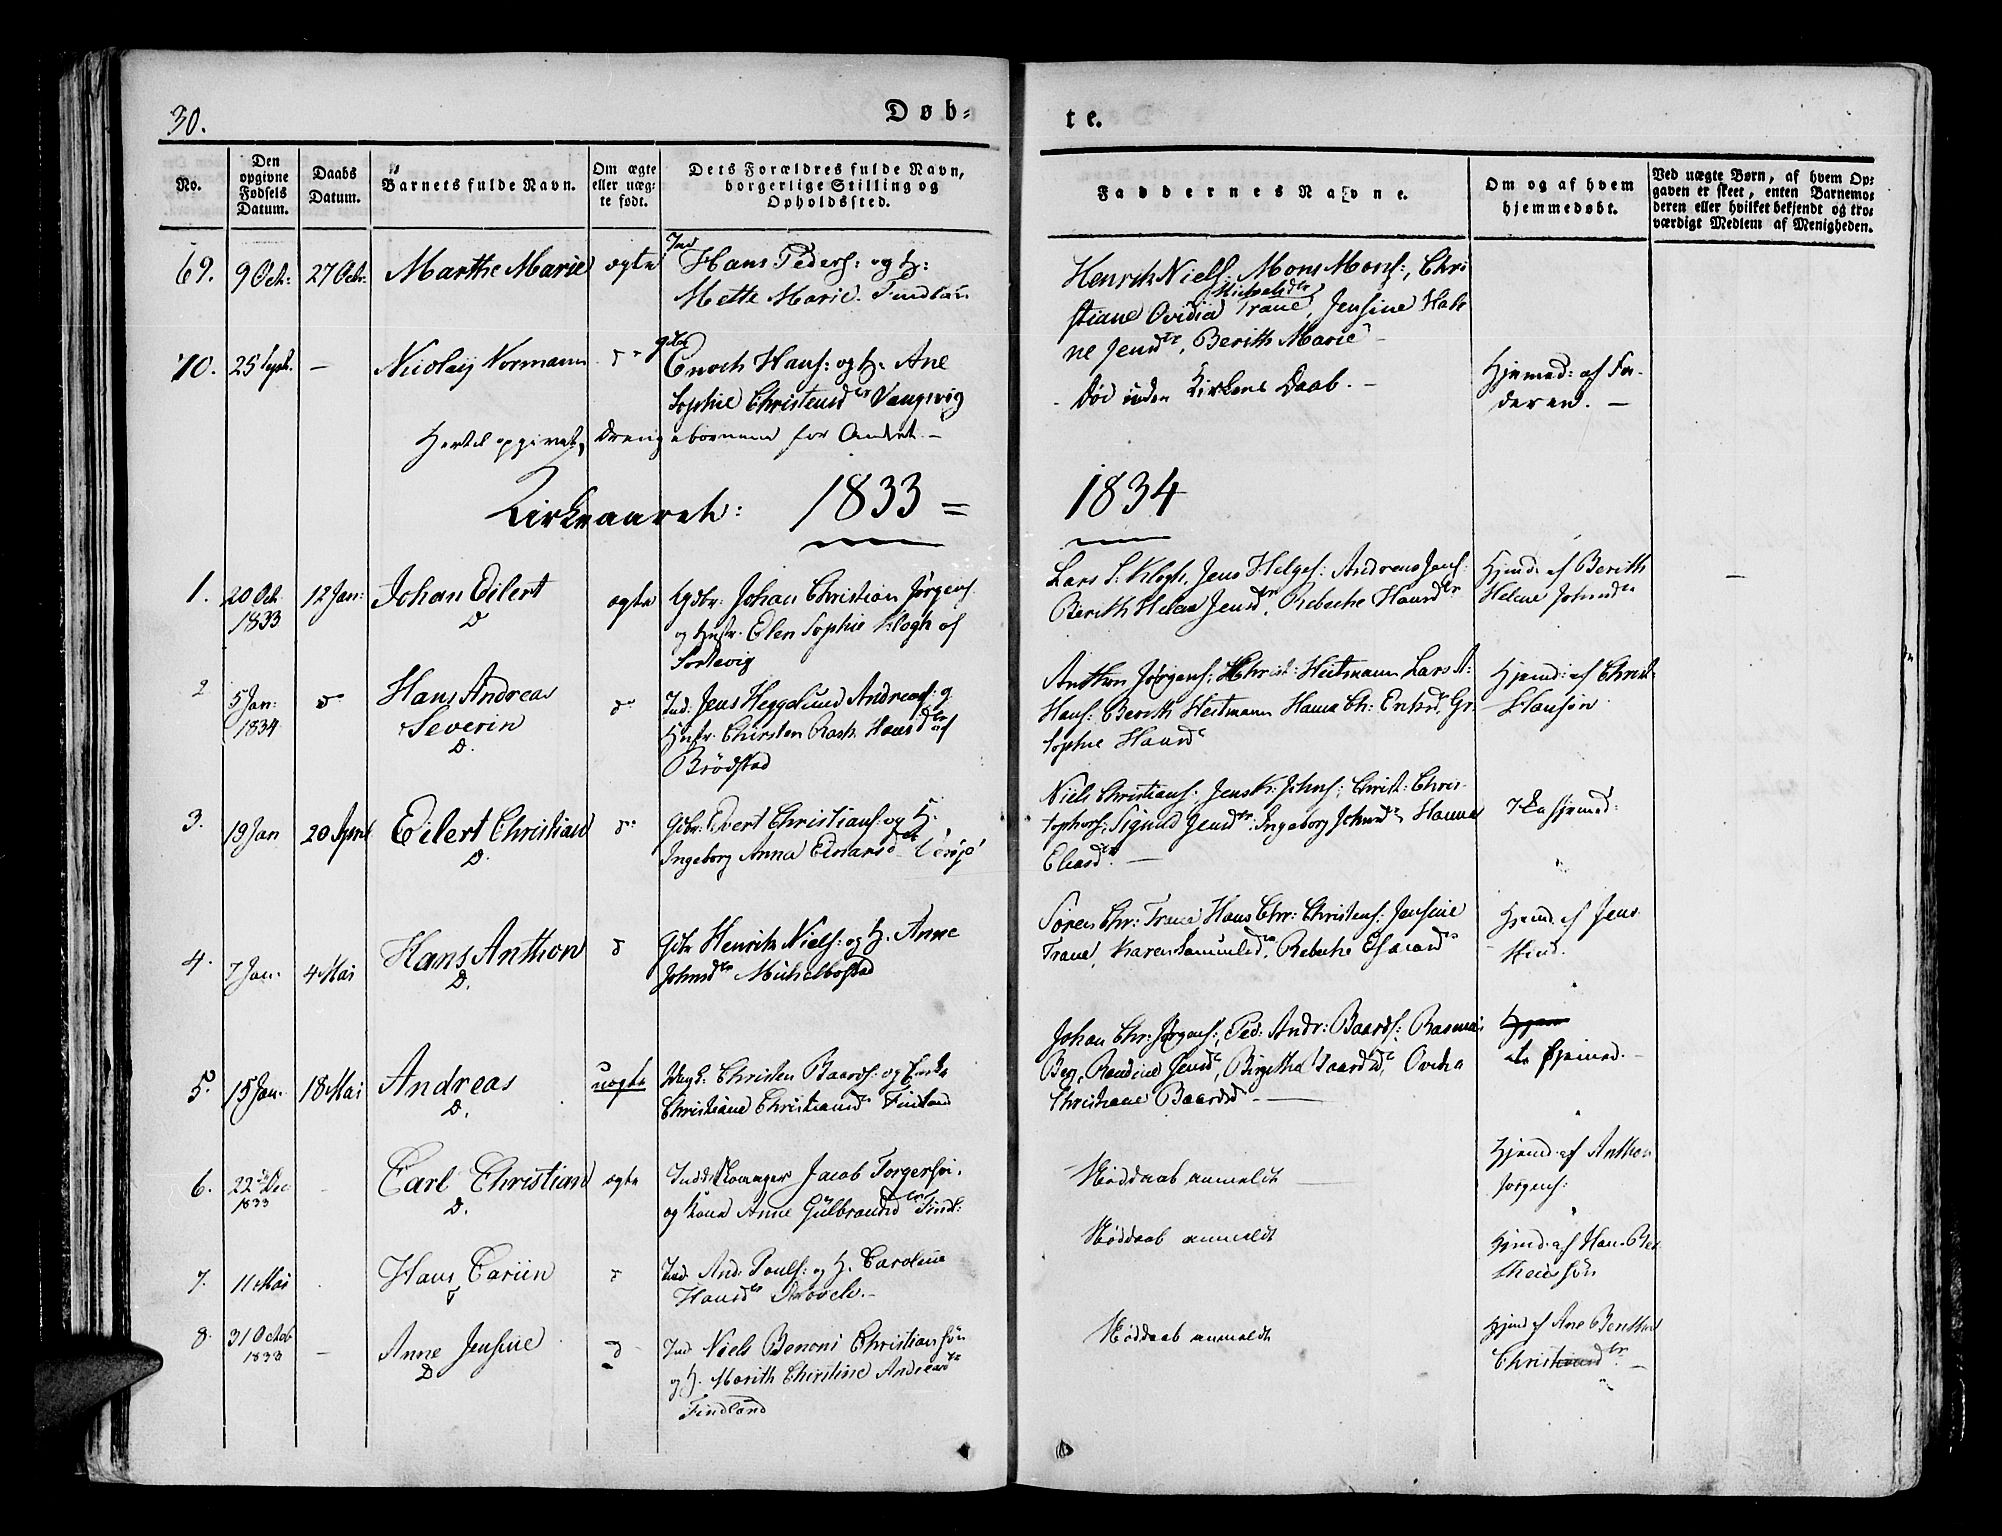 30.
Døb-
te.
No.
Den opgivne Fødsels Datum.
Daabs Datum.
Barnets fulde Navn.
Om ægte eller uæg-te født.
Dets Forældres fulde Navn, borgerlige Stilling og Opholdssted.
Faddernes Navne.
Om og af hvem hjemmedøbt.
Ved uægte Børn, af hvem Op-
gaven er skeet, enten Barnemo-
deren eller hvilket bekjendt og tro-
værdigt Medlem af Menigheden.
69. 9 Octr: 27 Octr. Marthe Marie ægte Ind Hans Peders: og H:
Mette Marie
Henrik Niels: Mons Mons:, Chri
stiane Ovidia Michelsdtr Trane, Jensine Hal
ne Jensdtr, Berith Marie
70. 25 Sept. — Nicolaij Normann Gbr Enoch Hans: og H. Ane
Sophie Christensdtr Vangsvig
Død uden Kirkens Daab. —
Hjemed: af Fa-
deren. —
Hertil opgivet, Drengebørnene for Andet. —
Kirkeaaret: 1833 =
1834
1. 20 Oct. 1833 12 Jan: Johan Eilert D ægte Gdbr. Johan Christian Jørgens:
og Hustr. Elen Sophie Klogh af
Lars S. Klogh, Jens Helges: Andreas Jens:
Berith Helene Jensdtr, Rebecke Hansdtr
Hjemd: af Berith
Helene Johnsdtr
—
2 5 Jan: 1834 do Hans Andreas
Severin
D.
do Ind: Jens Heggelund Andreas: og
Hustr. Chirsten Rask Hansdtr af
Brødstad
Anthon Jørgens: Christ: Heitmann Lars A:
Hans: Berith Heitmann Hanna Ch:
Sophie Hansd
Hjemd: af Christ.
Hansøn
3. 19 Jan 20 April Eilert Christian D. do Gbr: Evert Christians: og H.
Ingeborg Anna
Niels Christians: Jens K. Johns: Christ: Chris-
tophers: Sigrid Jensdtr, Ingeborg Johnsdtr Hanna
Eliasdtr —
4. 7 Jan. 4 Mai Hans Anthon D. do Gbr Henrik Niels: og H. Anne
Johnsdtr Michelbostad
Søren Chr: Trane Hans Chr: Christens: Jensine
Trane, Karen Samuelsd, Rebecke
Hjemd: af Jens
Hind.
5. 15 Jan. 18 Mai Andreas D. uægte Christen Baards: og
Christiane Christiansd Finland
Johan Chr: Jørgens:, Ped: Andr: Baards: Rasmus
Berg, Jensd, Birgitha Baardsd, Ovidia
Christiane Baardsd —
Hjem
Hjemmed. —
6. 22 Dec 1833 Carl Christian D. ægte Jacob Torgersøn
og Kone Anne Gulbrandsdtr Finl:
Nøddaab anmeldt —
Hjemd: af Anthon
Jørgens:
7. 11 Mai Hans Carin Ind. And: Pouls: og H. Carolena
Hansdtr
Nøddaab anmeldt
Hjemd: af Hans Ber
8. 31 Octob 1833 — Anne Jensine D do Ind Niels Benoni Christiansøn
og H. Marith Christine Andreasdtr
Findland
Nøddaab anmeldt
Hjemd af Ane
Christiansdtr —